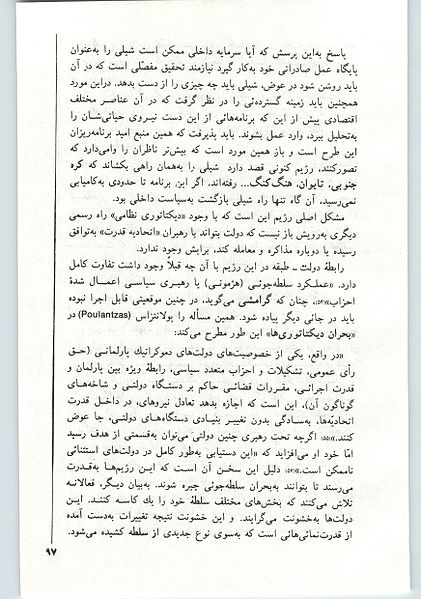 پاسخ به‌این پرسش که آیا سرمایه داخلی ممکن است شیلی را به‌عنوان
پایگاه عمل صادراتی خود به‌کار گیرد نیازمند تحقیق مفصّلی است که در آن
باید روشن شود در عوض، شیلی باید چه چیزی را از دست بدهد. دراین مورد
همچنین باید زمینه گسترده‌ئی را در نظر گرفت که در آن عناصر مختلف
اقتصادی پیش از این که برنامه‌هائی از این دست نیروی حیاتی‌شان را
به‌تحلیل ببرد، وارد عمل بشوند. باید پذیرفت که همین منبع امید برنامه‌ریزان
این طرح است و باز همین مورد است که بیش‌تر ناظران را وامی‌دارد که
تصورکنند، رژیم کنونی قصد دارد شیلی را به‌همان راهی بکشاند که کره
جنوبی، تایوان، هنگ‌کنگ... رفته‌اند. اگر این برنامه تا حدودی به‌کامیابی
نمی‌رسید، آن گاه تنها راه شیلی بازگشت به‌سیاست داخلی بود.
مشکل اصلی رژیم این است که با وجود «دیکتاتوری نظامی» راه رسمی
دیگری به‌رویش باز نیست که دولت بتواند با رهبران «اتحادبه قدرت» به‌توافق
رسیده یا دوباره مذاکره و معامله کند، برایش وجود ندارد.
رابطهٔ دولت ـ طبقه در این رژیم با آن چه قبلاً وجود داشت تفاوت کامل
دارد. «عملکرد سلطه‌جوئی (هژمونی) یا رهبری سیاسی اعمال شدهٔ
احزاب» چنان که گرامشی می‌گوید، در چنین موقعیتی قابل اجرا نبوده
باید در جائی دیگر پیاده شود. همین مسأله را پولانتزاس (Poulantzas) در
«بحران دیکتاتوری‌ها» این طور مطرح می‌کند:
«در واقع، یکی از خصوصیت‌های دولت‌های دموکراتیک پارلمانی (حق
رأی عمومی، تشکیلات و احزاب متعدد سیاسی، رابطهٔ ویژه بین پارلمان و
قدرت اجرائی، مقررات قضائی حاکم بر دستگاه دولتی و شاخه‌های
گوناگون آن)، این است که اجازه بدهد تعادل نیروهای، در داخل قدرت
اتحادیّه‌ها، به‌سادگی بدون تغییر بنیادی دستگاه‌های دولتی، جا عوض
کنند.» اگرچه تحت رهبری چنین دولتی می‌توان به‌قسمتی از هدف رسید
امّا خود او می‌افزاید که «این دستیابی به‌طور کامل در دولت‌های استثنائی
ناممکن است.» دلیل این سخن آن است که این رژیم‌ها به‌قدرت
می‌رسند تا بتوانند به‌بحران سلطه‌جوئی چیره شوند. به‌بیان دیگر، فعالانه
تلاش می‌کنند که بخش‌های مختلف سلطهٔ خود را یك کاسه کنند. این
دولت‌ها به‌خشونت می‌گرایند. و این خشونت نتیجه تغییرات به‌دست آمده
از قدرت‌نمائی‌هائی است که به‌سوی نوع جدیدی از سلطه کشیده می‌شود.
۹۷